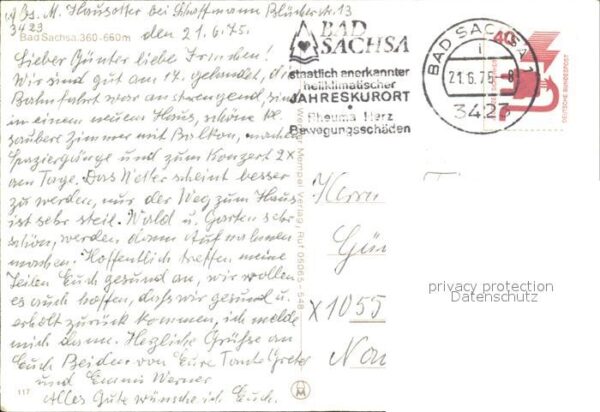 M. Hausotter bei Schaffmann Blücherstr. 13
3423
den 21.6.75.
Bad Sachsa, 360-660m
Lieber Günter liebe Frauchen!
Wir sind gut am 17. gelandet, die
Bahnfahrt war anstrengend, sind
in einem neuen Haus, schöne
saubere Zimmer mit Balkon, machen
Spaziergänge und zum Konzert 2x
am Tage. Das Wetter scheint besser
zu werden, nur der Weg zum Haus
ist sehr steil. Wald u. Garten sehr
schön, werden dann Aufnahmen
machen. Hoffentlich treffen meine
Zeilen Euch gesund an, wir wollen
es auch hoffen, dass wir gesund u.
erholt zurück kommen, ich melde
mich dann. Herzliche Grüsse an
Euch Beiden von Eure Tante Grete
und Werner
Alles Gute wünsche ich Euch.
117
Mempel Verlag, Ruf 05065-548
BAD
SACHSA
staatlich anerkannter
heilklimatischer
JAHRESKURORT
Rheuma Herz
Bewegungsschäden
BAD SACHSA 1
21.6.75-8
3423
40
DEUTSCHE BUNDESPOST
Herrn
Gün
X1055
privacy protection
Datenschutz